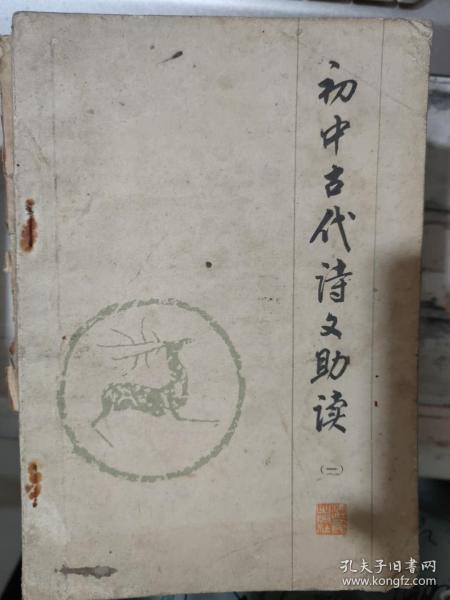 初中古代诗文助读
（一）
孔夫子旧书网
www.kongfz.com